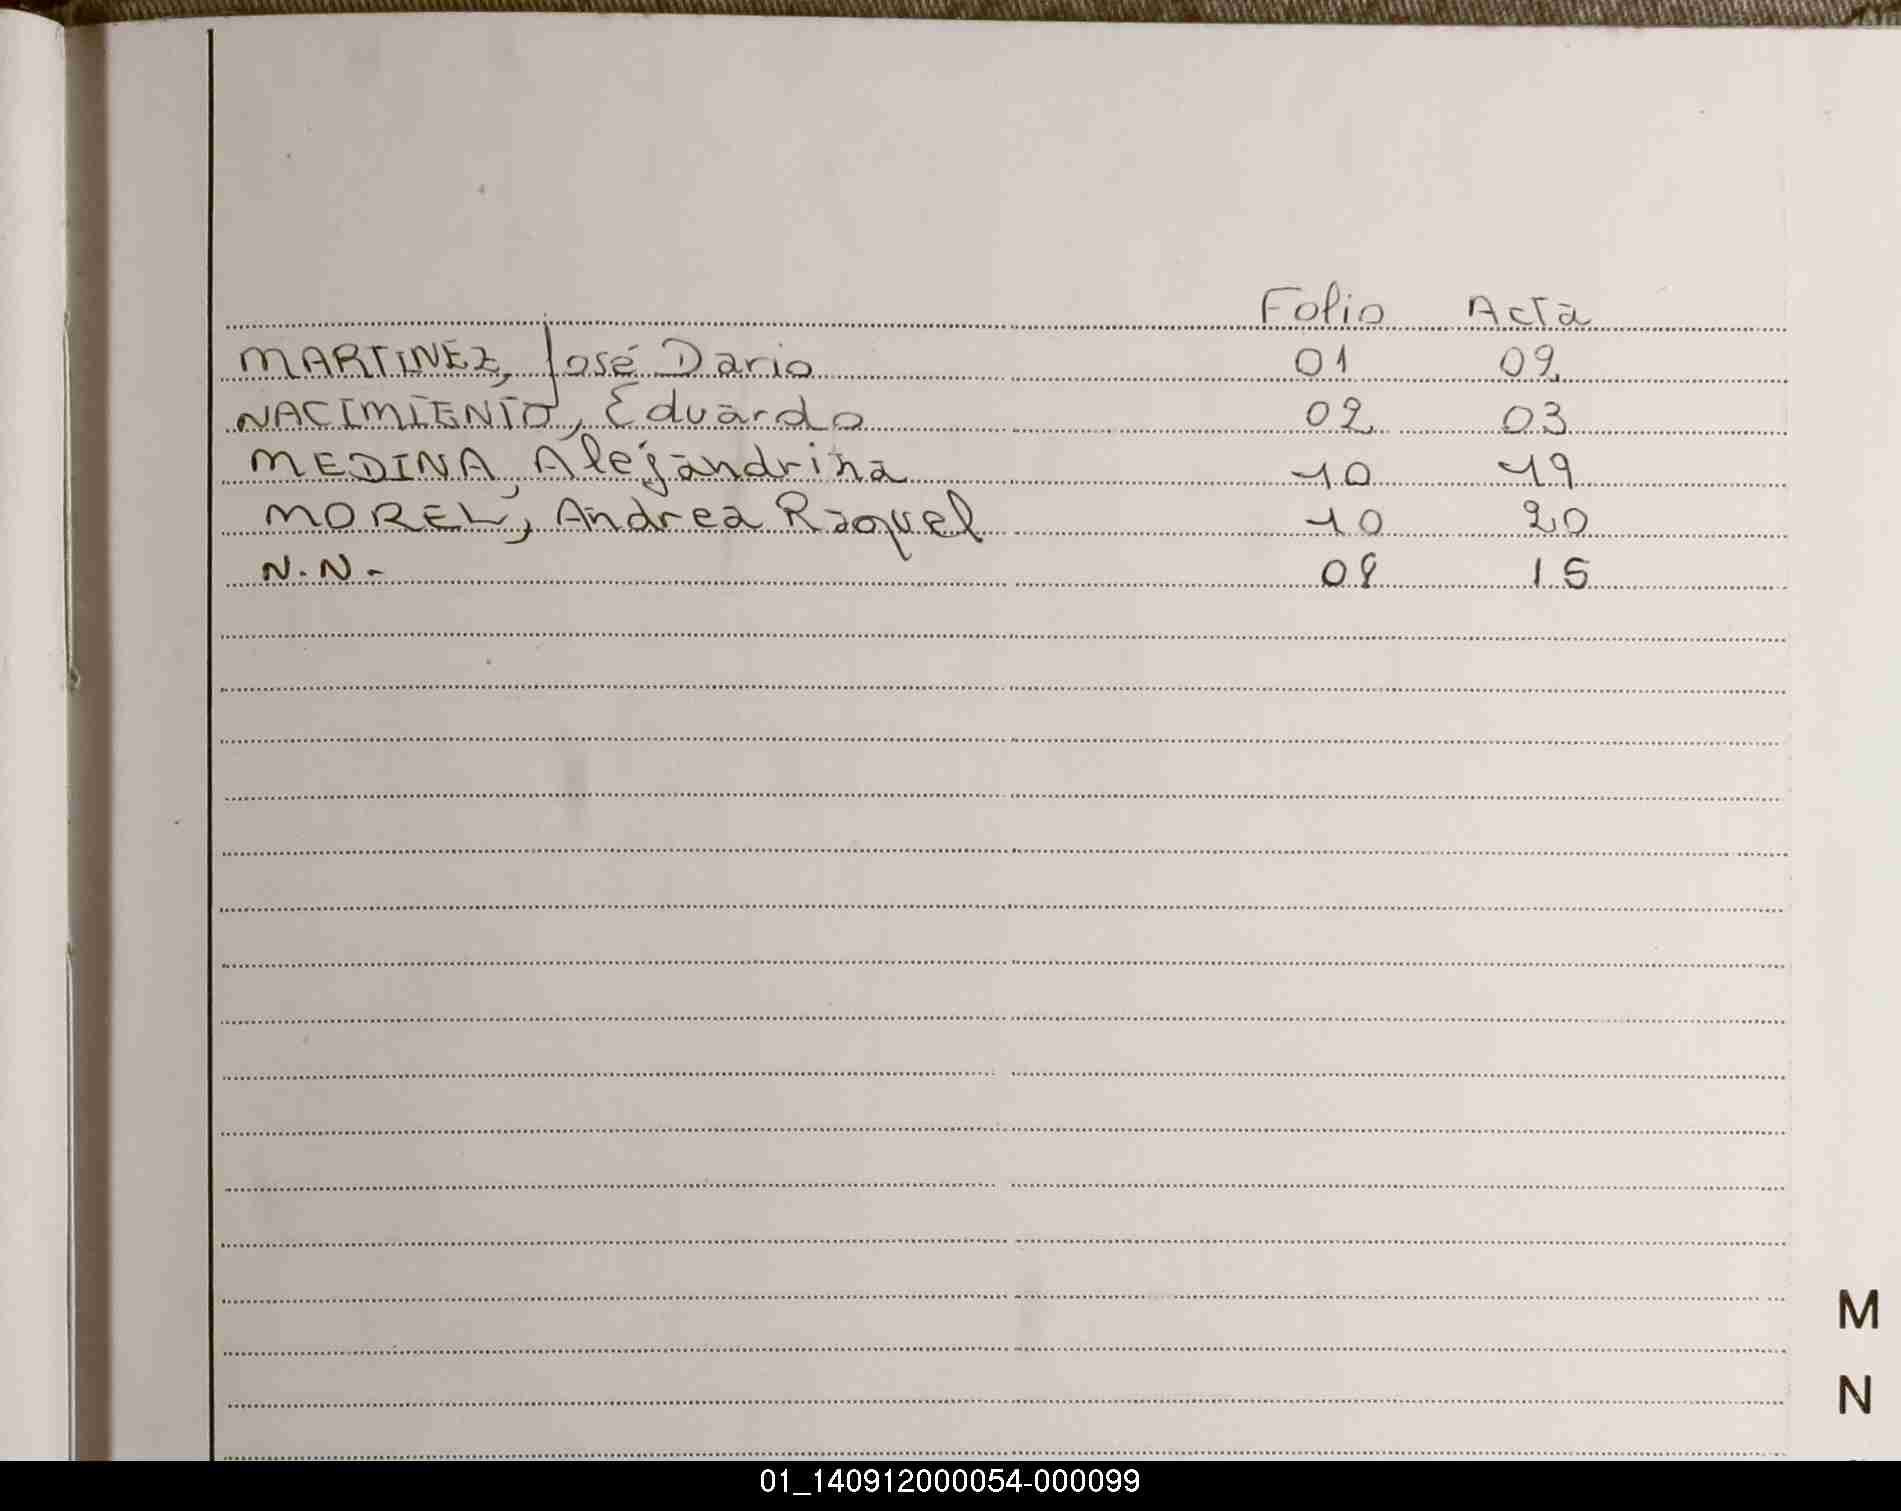 Folio Acta
MARTINEZ, José Dario 01 02
NACIMIENTO, Eduardo 02 03
MEDINA, Alejandrina 10 19
MOREL, Andrea Raquel 10 20
N.N.- 08 15
M
N
01_140912000054-000099